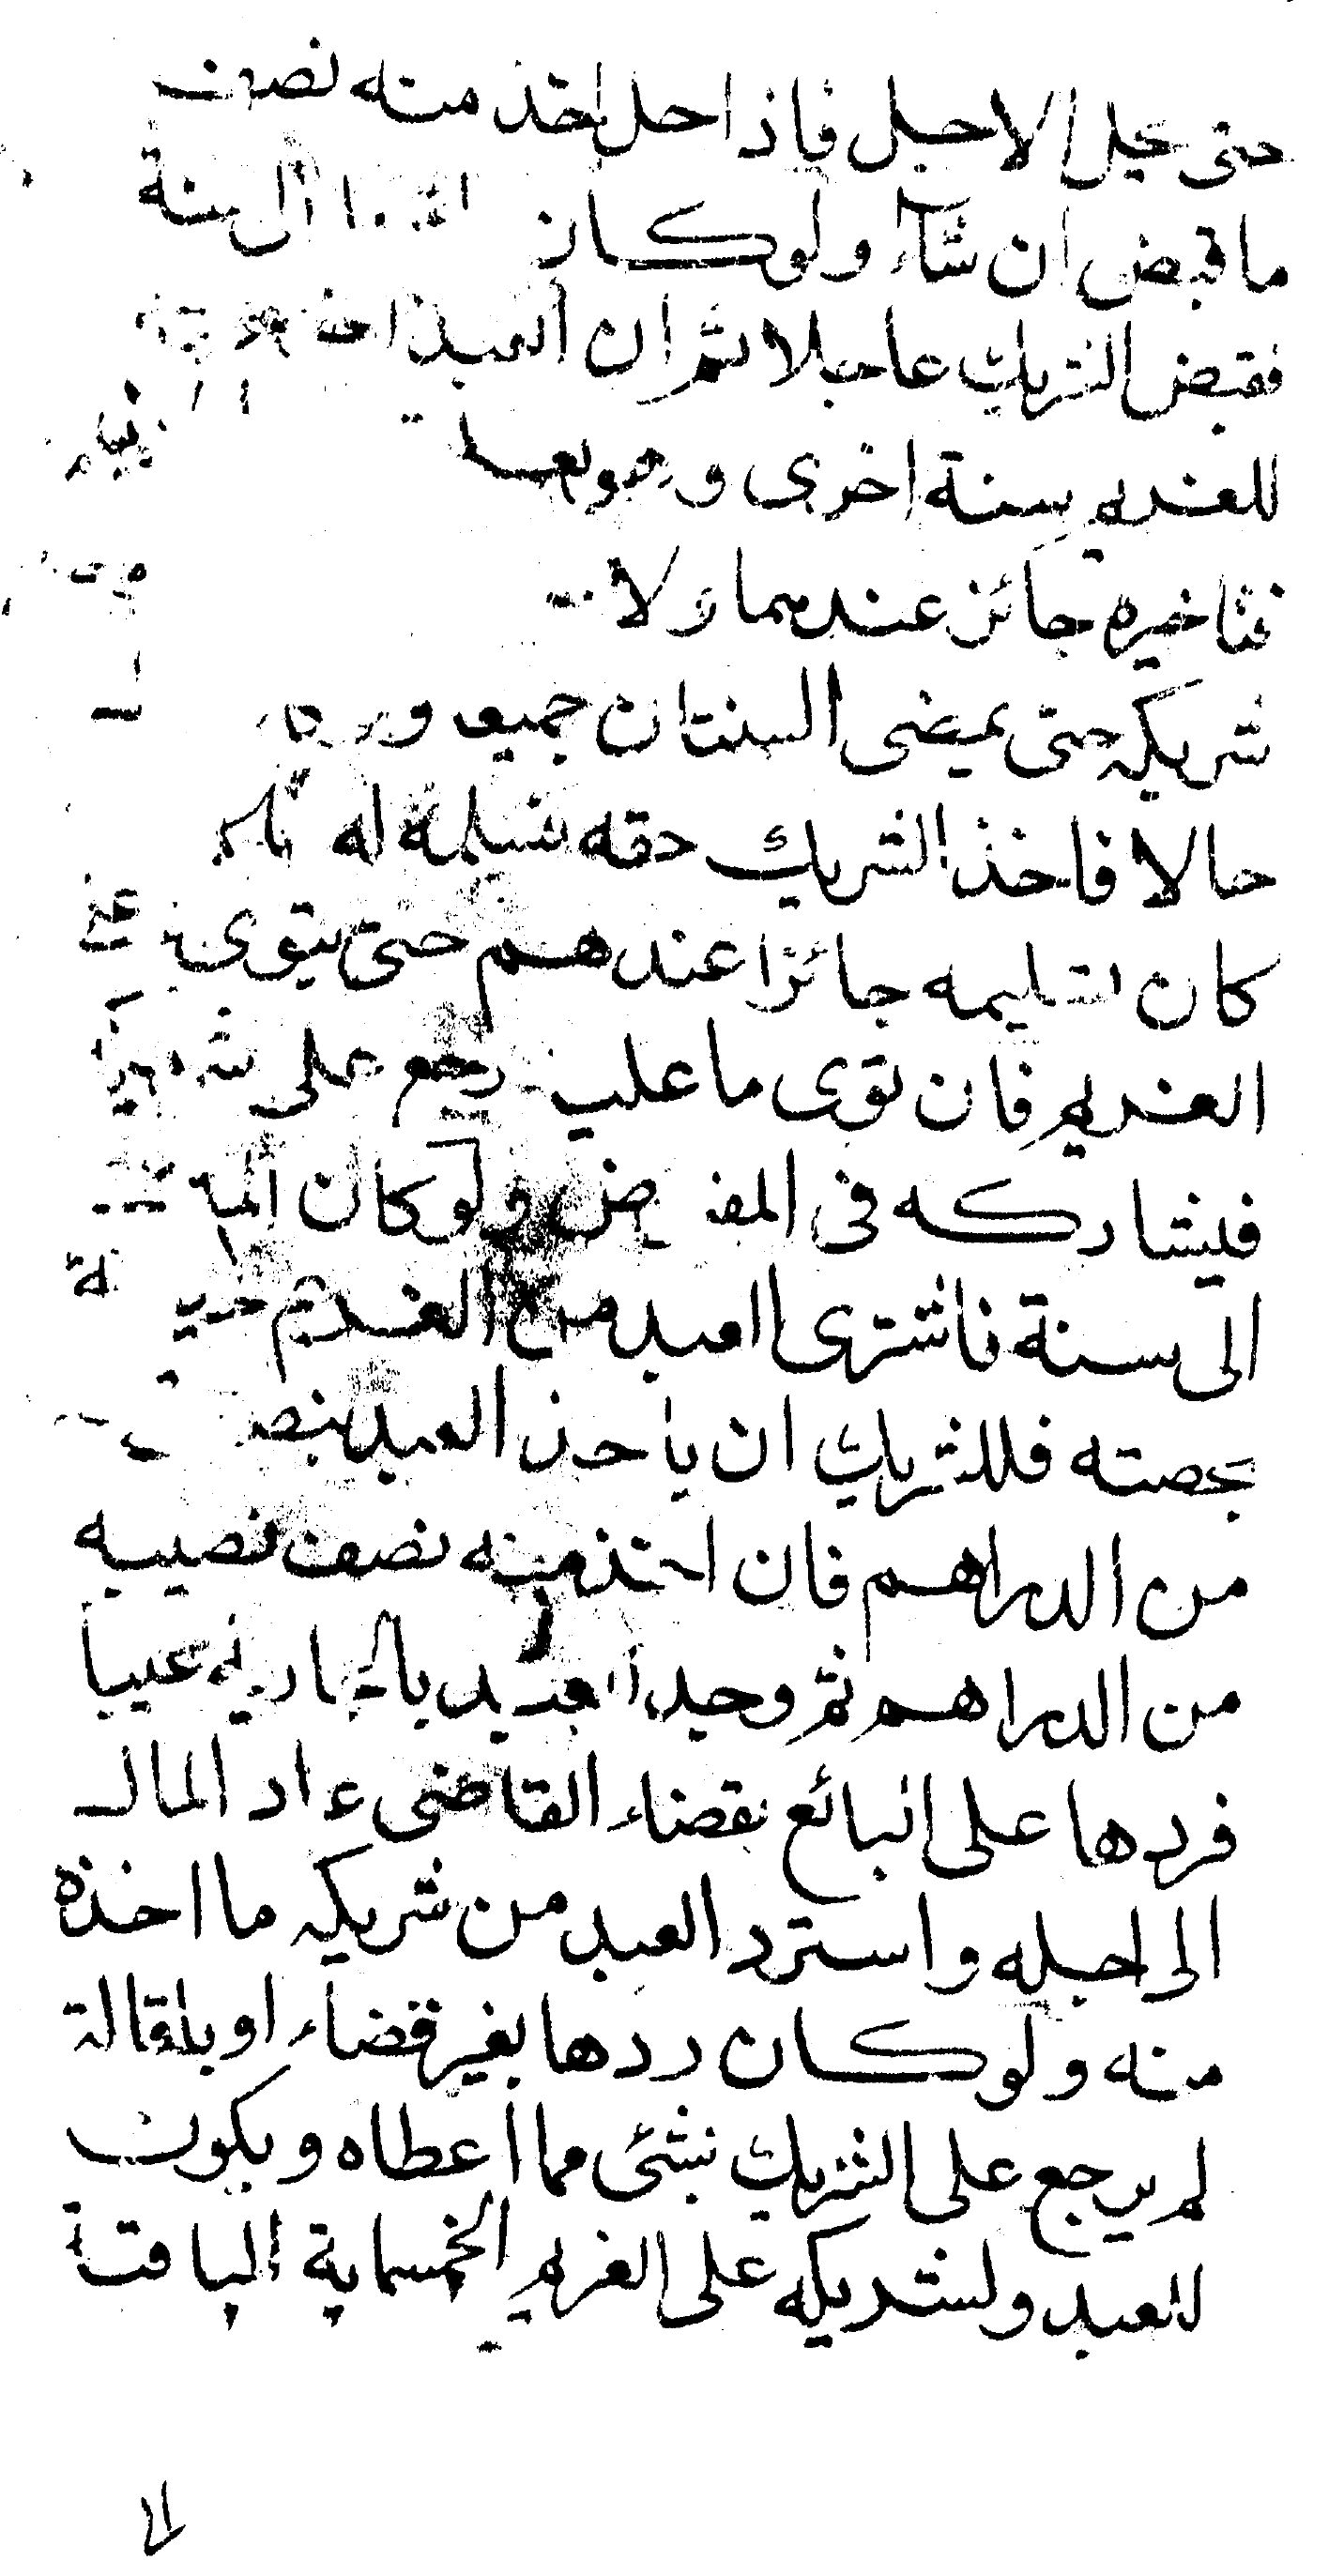 حتى يحل الاجل فاذا حل اخذ منه نصف
ما قبض ان شاء ولو كان الى سنة
فقبض الشريك عاجلا ثم ان العبد اخر
للغريم سنة اخرى وهو يعلم
فتاخيره جائز عندهما ولا
شريكه حتى يمضى السنتان جميعا
حالا فاخذ الشريك حقه سلمه له
كان تسليمه جائزا عندهم حتى يتوى
الغريم فان توى ما عليه رجع على شريكه
فيشاركه فى المقبوض ولو كان المال
الى سنة فاشترى العبد من الغريم جارية
بحصته فللشريك ان ياخذ العبد بنصف
من الدراهم فان اخذ منه نصف نصيبه
من الدراهم ثم وجد العبد بالجارية عيبا
فردها على البائع بقضاء القاضى عاد المال
الى اجله واسترد العبد من شريكه ما اخذه
منه ولو كان ردها بغير قضاء او باقالة
لم يرجع على الشريك بشئ مما اعطاه ويكون
للعبد ولشريكه على الغريم الخمسماية الباقية